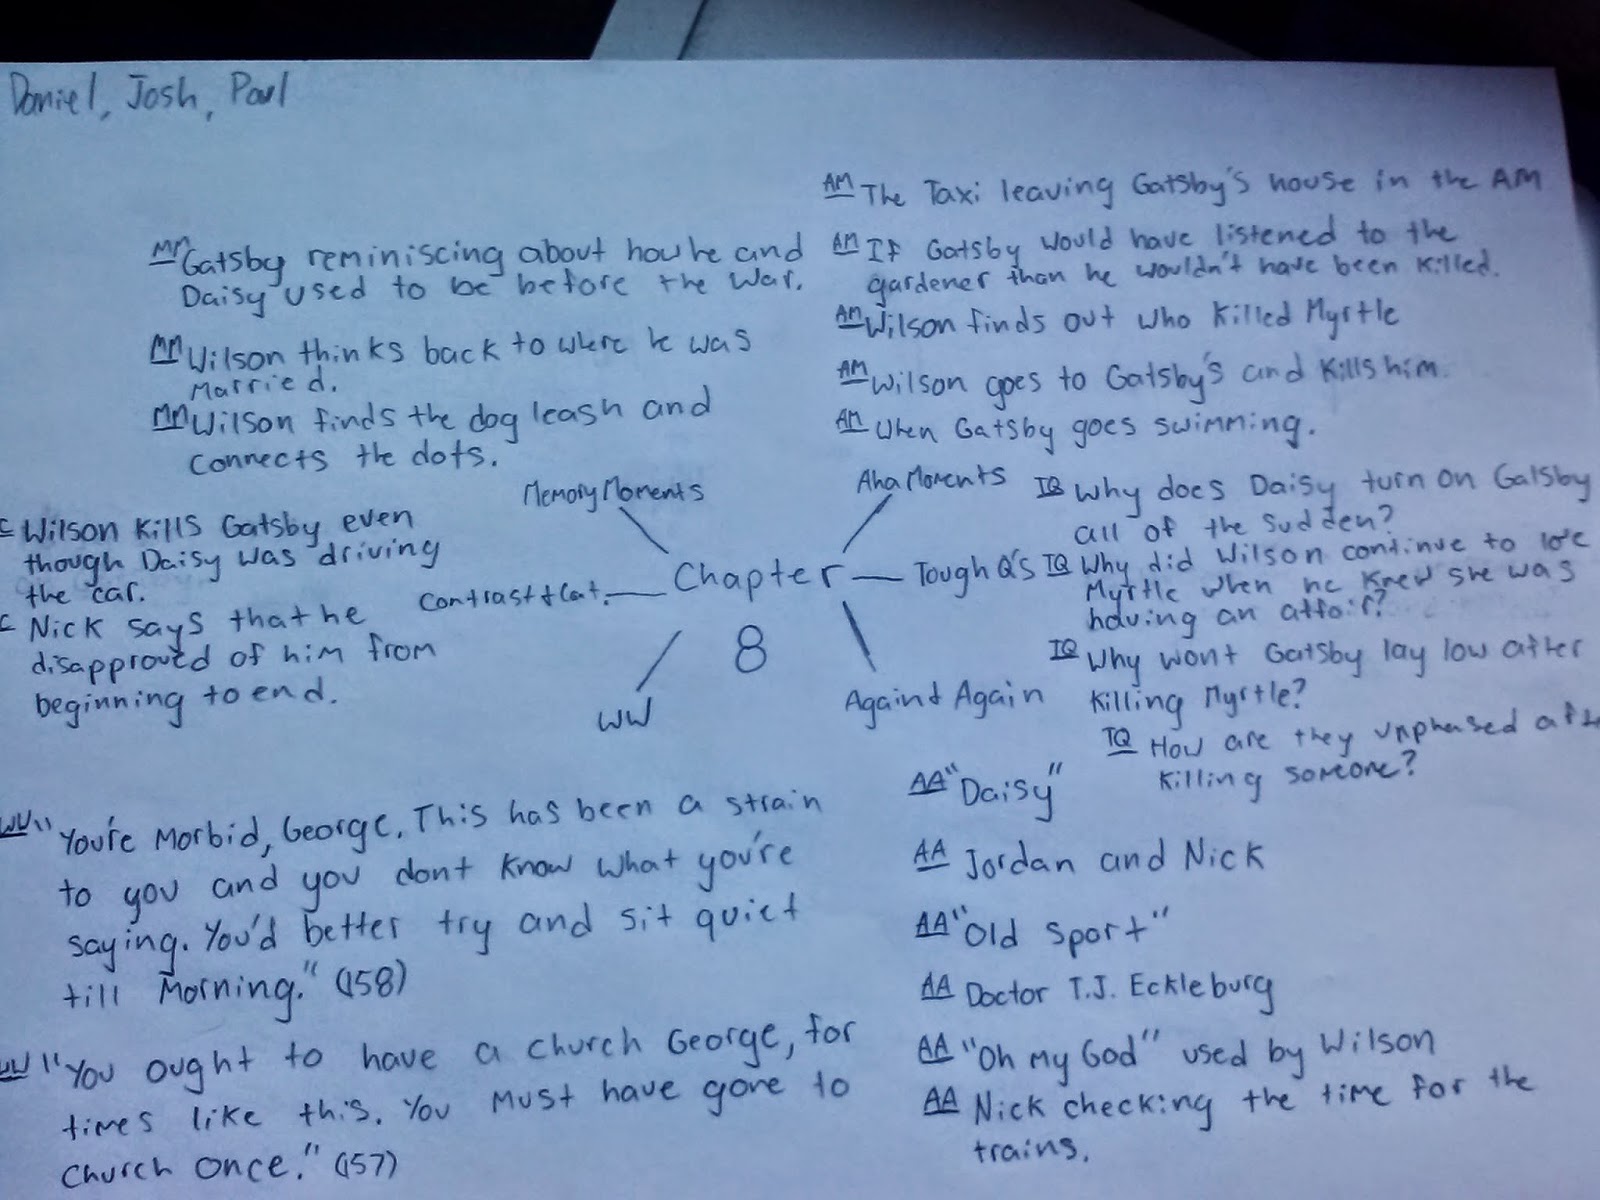 Daniel, Josh, Paul
MM Gatsby reminiscing about how he and
Daisy used to be before the War.
MM Wilson thinks back to where he was
Married.
MM Wilson finds the dog leash and
Connects the dots.
AM The Taxi leaving Gatsby's house in the AM
AM If Gatsby would have listened to the
gardener than he wouldn't have been killed.
AM Wilson finds out who killed Myrtle
AM Wilson goes to Gatsby's and kills him.
AM When Gatsby goes swimming.
Memory Moments
Aha Moments
C Wilson kills Gatsby even
though Daisy was driving
the car.
C Nick says that he
disapproved of him from
beginning to end.
Contrast & Cont.
Chapter
8
Tough Q's
WW
Again & Again
TQ Why does Daisy turn on Gatsby
all of the sudden?
TQ Why did Wilson continue to love
Myrtle when he knew she was
having an affair?
TQ Why wont Gatsby lay low after
killing Myrtle?
TQ How are they unphased after
killing someone?
WW "You're Morbid, George. This has been a strain
to you and you dont know what you're
saying. You'd better try and sit quiet
till Morning." (158)
WW "You ought to have a church George, for
times like this. You Must have gone to
Church Once." (157)
AA "Daisy"
AA Jordan and Nick
AA "Old Sport"
AA Doctor T.J. Eckleburg
AA "Oh my God" used by Wilson
AA Nick checking the time for the
trains.